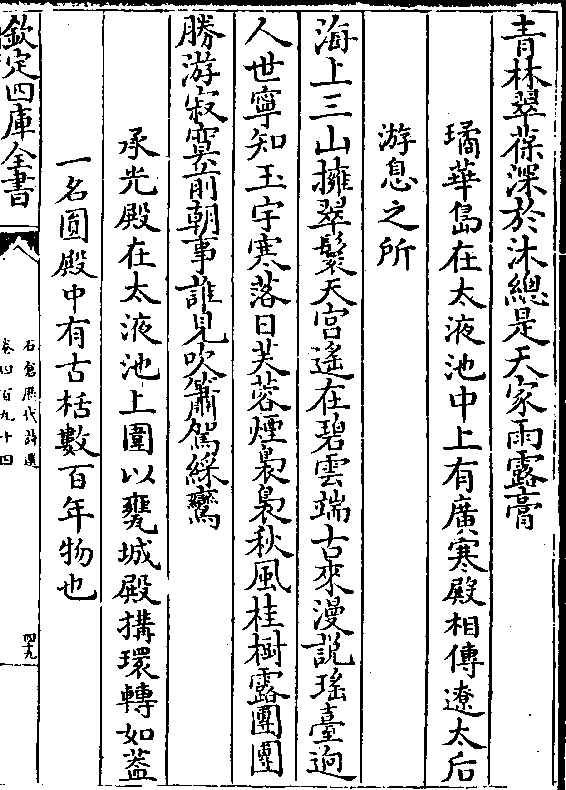 青林翠葆深於沐總是天家雨露膏
璚華島在太液池中上有廣寒殿相傳遼太后
游息之所
海上三山擁翠鬟天宫遙在碧雲端古來漫說瑤臺逈
人世寧知玉宇寒落日芙蓉煙裊裊秋風桂樹露團團
勝游寂寞前朝事誰見吹簫駕綵鸞
承光殿在太液池上圍以甕城殿搆環轉如葢
一名圓殿中有古栝數百年物也
欽定四庫全書
石倉歷代詩選
卷四百九十四
四九